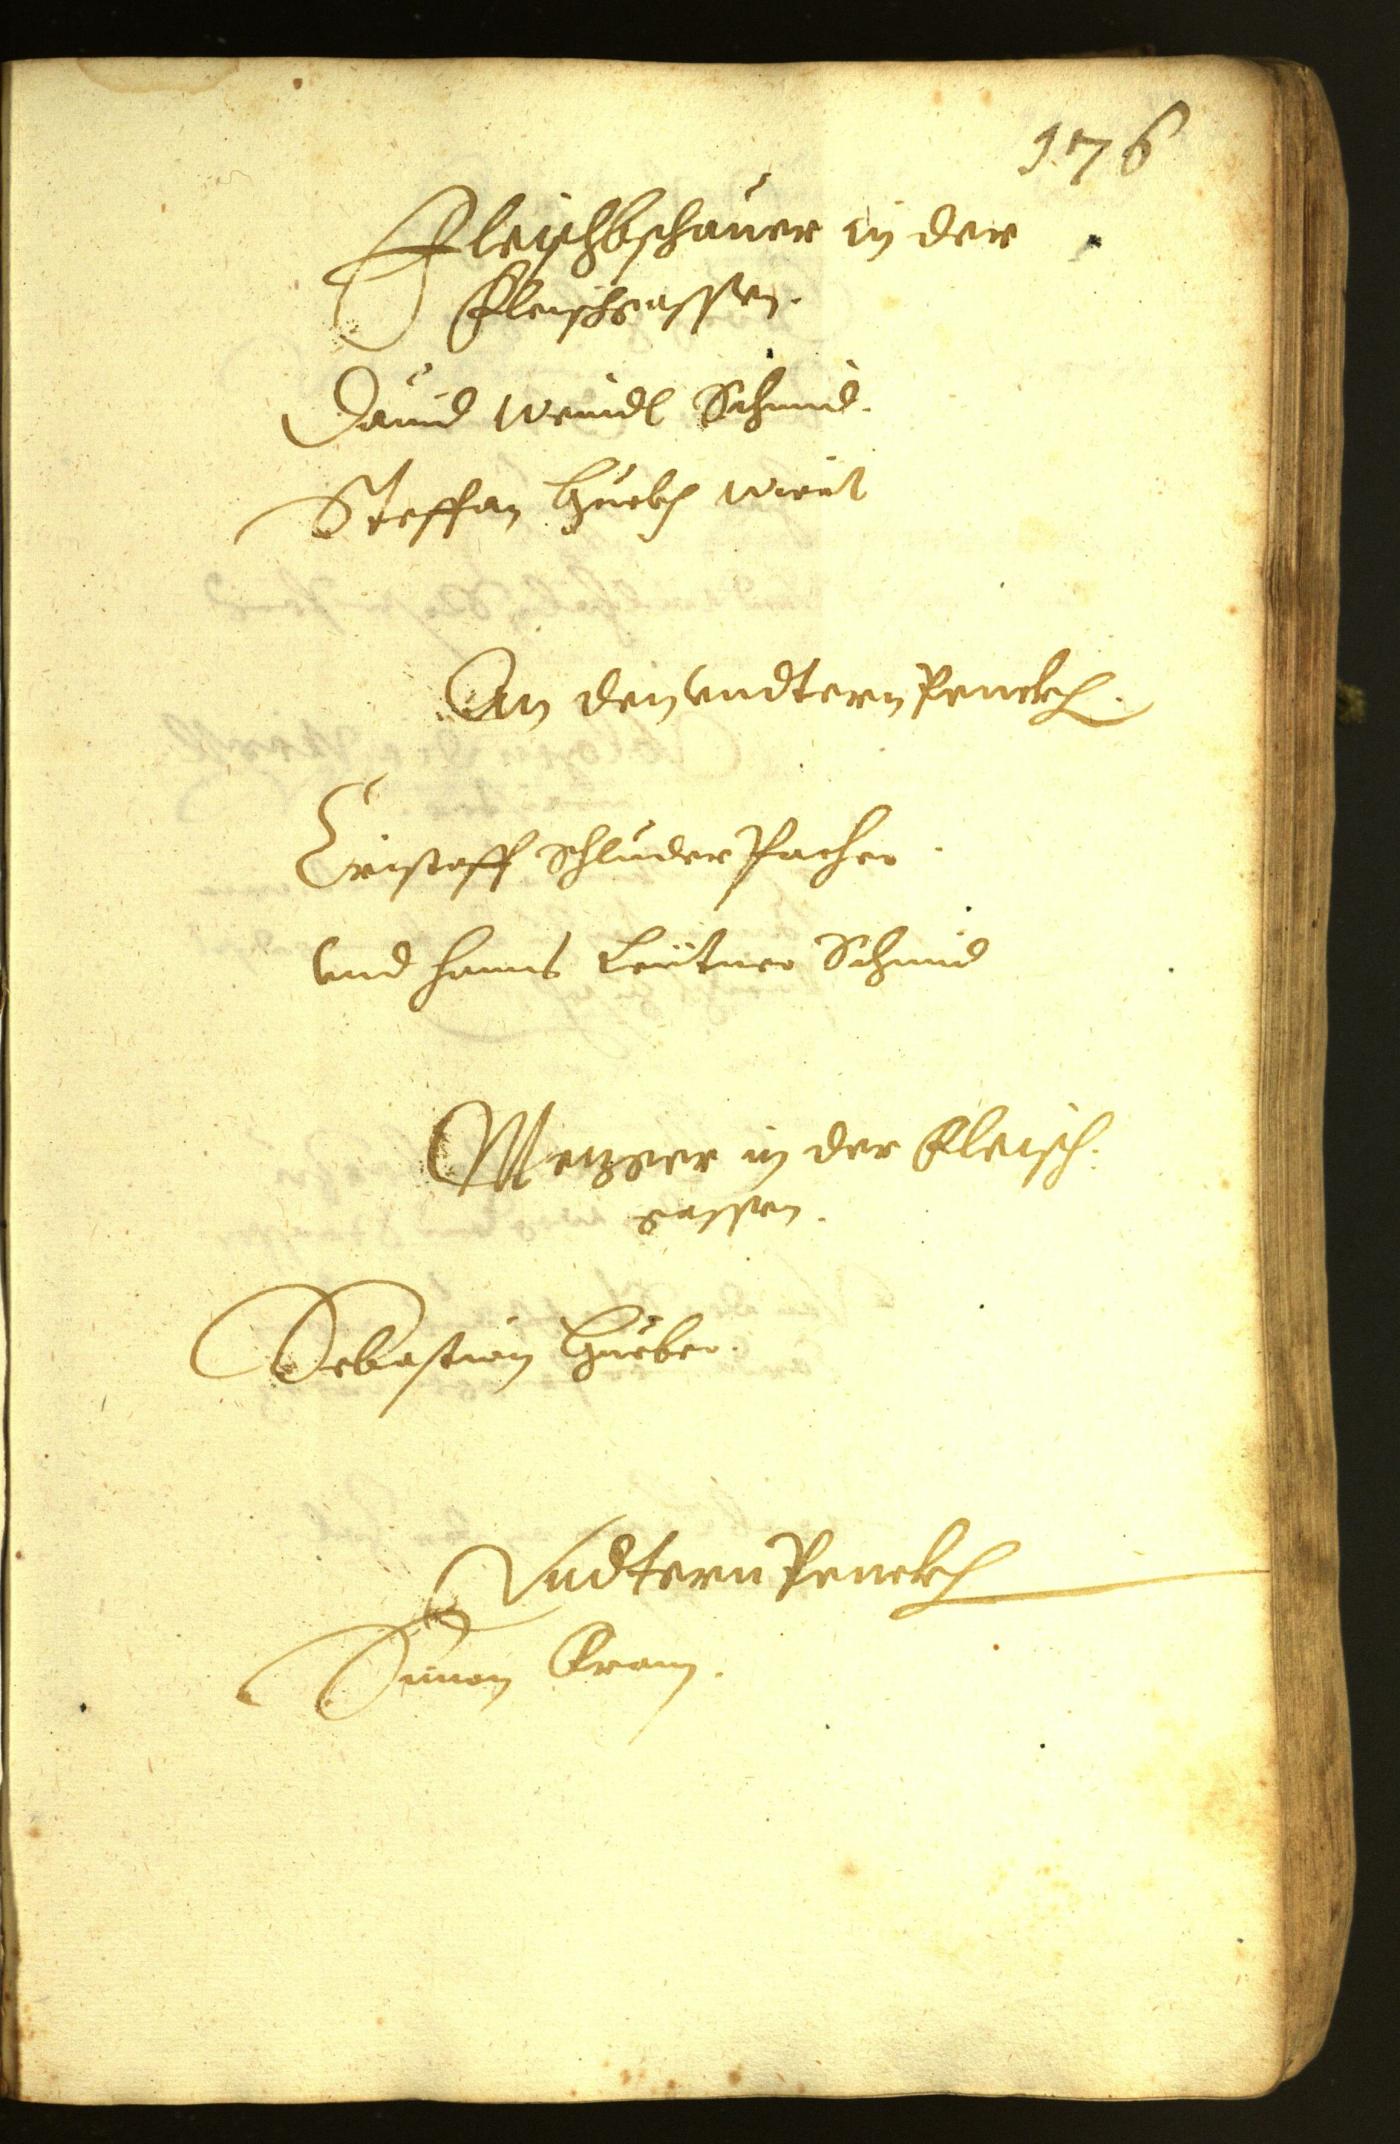 176
Fleischbschauer in der
Fleischgassen.
Dauid Weindl Schmid.
Steffan Huebm Wirt
An den vndtern Penckh.
Cristoff Schluderpacher
vnd Hanns Leütner Schmid
Metzger in der Fleisch:
gassen.
Sebastian Hueber.
Vndtern Penckh
Simon Cram.